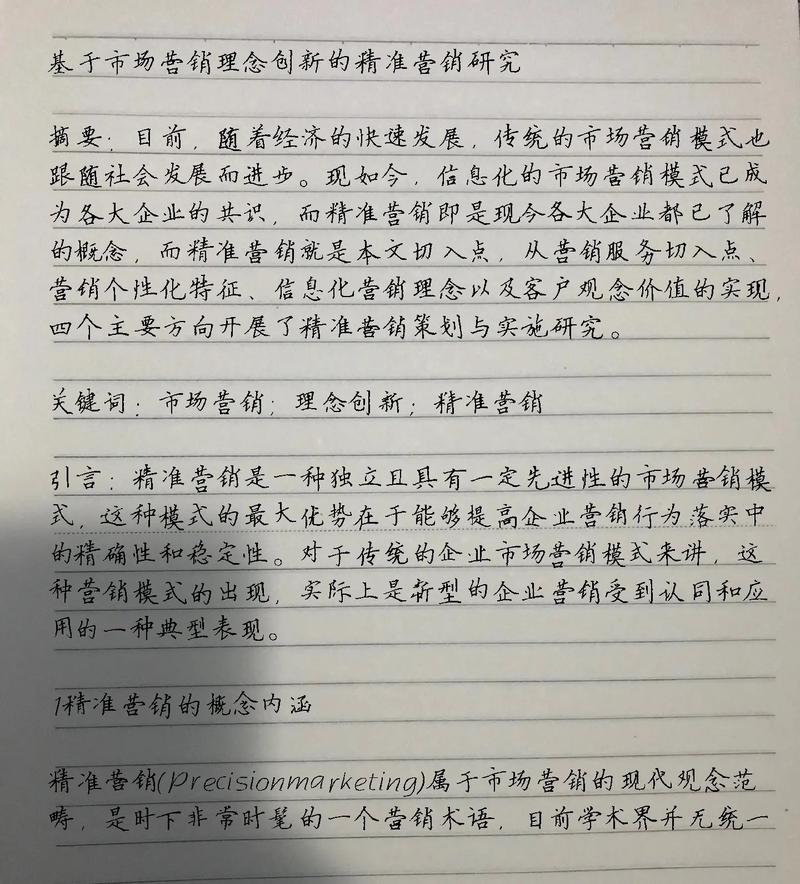 基于市场营销理念创新的精准营销研究
摘要：目前，随着经济的快速发展，传统的市场营销模式也
跟随社会发展而进步。现如今，信息化的市场营销模式已成
为各大企业的共识，而精准营销即是现今各大企业都已了解
的概念，而精准营销就是本文切入点，从营销服务切入点、
营销个性化特征、信息化营销理念以及客户观念价值的实现，
四个主要方向开展了精准营销策划与实施研究。
关键词：市场营销；理念创新；精准营销
引言：精准营销是一种独立且具有一定先进性的市场营销模
式，这种模式的最大优势在于能够提高企业营销行为落实中
的精确性和稳定性。对于传统的企业市场营销模式来讲，这
种营销模式的出现，实际上是新型的企业营销受到认同和应
用的一种典型表现。
1精准营销的概念内涵
精准营销(Precisionmarketing)属于市场营销的现代观念范
畴，是时下非常时髦的一个营销术语，目前学术界并无统一